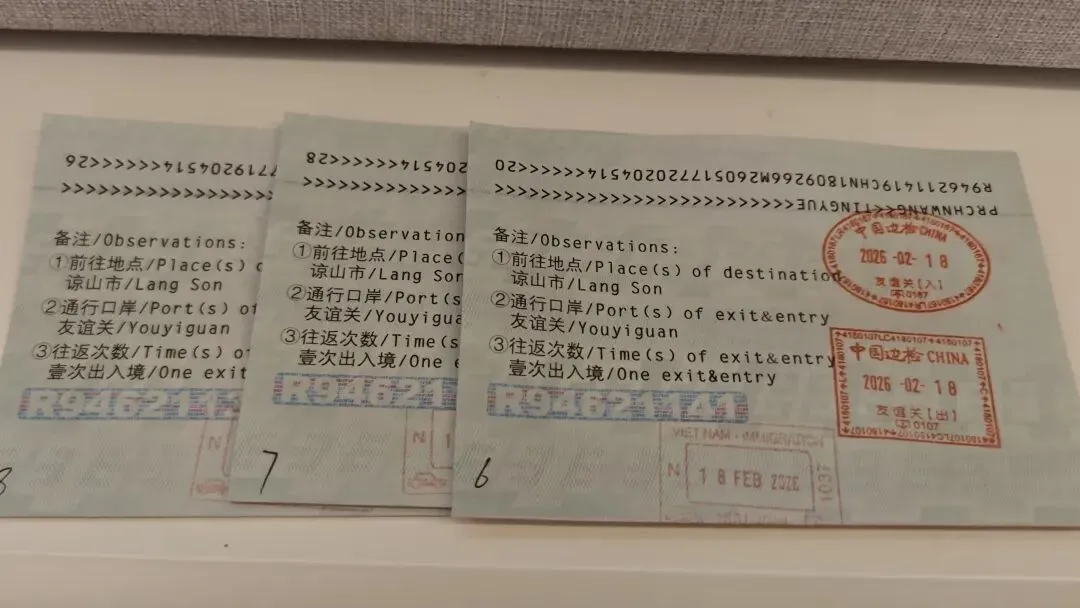 7719204514<<<<<<<<<<26
<<<<<<<<<<<<<<<<<<
备注/Observations:
①前往地点/Place(s)
谅山市/Lang Son
②通行口岸/Port(s) of
友谊关/Youyiguan
③往返次数/Time(s)
壹次出入境/One exit
R946211
N
204514<<<<<<<28
<<<<<<<<<<<<<
备注/Observation
①前往地点/Place(
谅山市/Lang Son
②通行口岸/Port(s
友谊关/Youyigua
③往返次数/Time(s
壹次出入境/One e
R946211
N 1
7
R946211419CHN1809266M260517720204514<<<<<<<20
PRCHNWANG<<TINGYUE<<<<<<<<<<<<<<<<<<<<<<<<<<
备注/Observations:
①前往地点/Place(s) of destination
谅山市/Lang Son
②通行口岸/Port(s) of exit&entry
友谊关/Youyiguan
③往返次数/Time(s) of exit&entry
壹次出入境/One exit&entry
R94621141
中国边检CHINA
2026-02-18
友谊关[入]
中国边检CHINA
2026-02-18
友谊关[出]
VIET NAM - IMMIGRATION
N 18 FEB 2026 1037
6